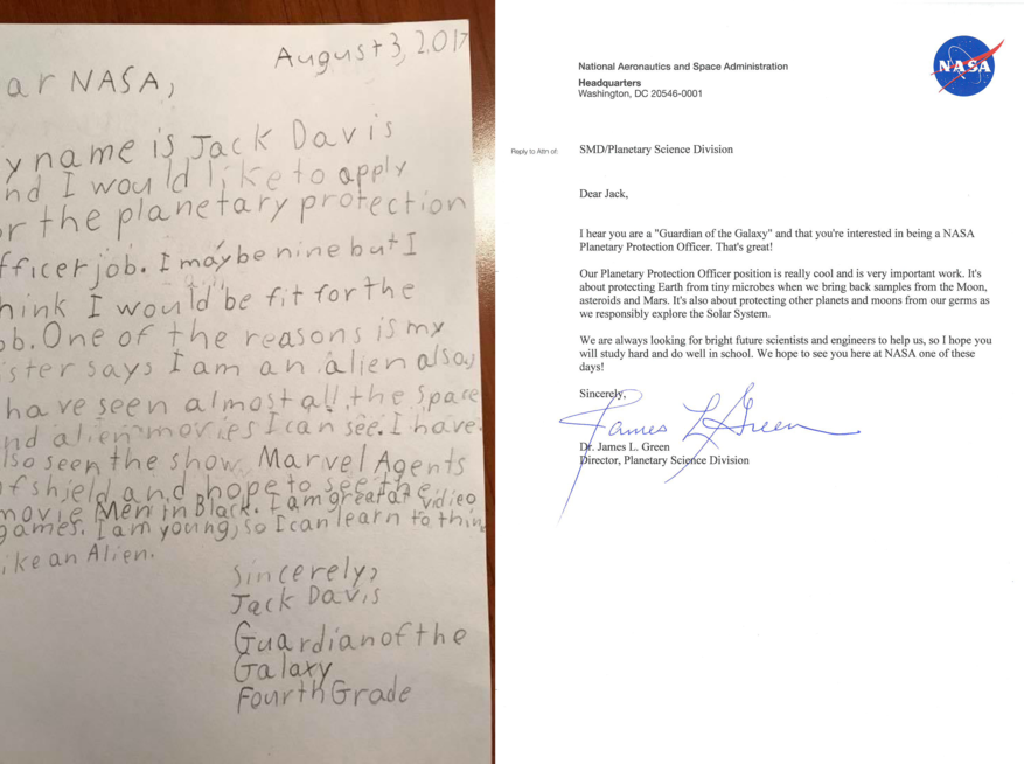 August 3, 2017
ar NASA,
y name is Jack Davis
nd I would like to apply
r the planetary protection
fficer job. I may be nine but I
hink I would be fit for the
ob. One of the reasons is my
ister says I am an alien also,
have seen almost all the space
nd alien movies I can see. I have
lso seen the show Marvel Agents
f shield and hope to see the
movie Men in Black. I am great at vidieo
games. I am young, so I can learn to thin
ike an Alien.
Sincerely,
Jack Davis
Guardian of the
Galaxy
Fourth Grade
National Aeronautics and Space Administration
Headquarters
Washington, DC 20546-0001
NASA
Reply to Attn of: SMD/Planetary Science Division
Dear Jack,
I hear you are a "Guardian of the Galaxy" and that you're interested in being a NASA
Planetary Protection Officer. That's great!
Our Planetary Protection Officer position is really cool and is very important work. It's
about protecting Earth from tiny microbes when we bring back samples from the Moon,
asteroids and Mars. It's also about protecting other planets and moons from our germs as
we responsibly explore the Solar System.
We are always looking for bright future scientists and engineers to help us, so I hope you
will study hard and do well in school. We hope to see you here at NASA one of these
days!
Sincerely,
James L Green
Dr. James L. Green
Director, Planetary Science Division